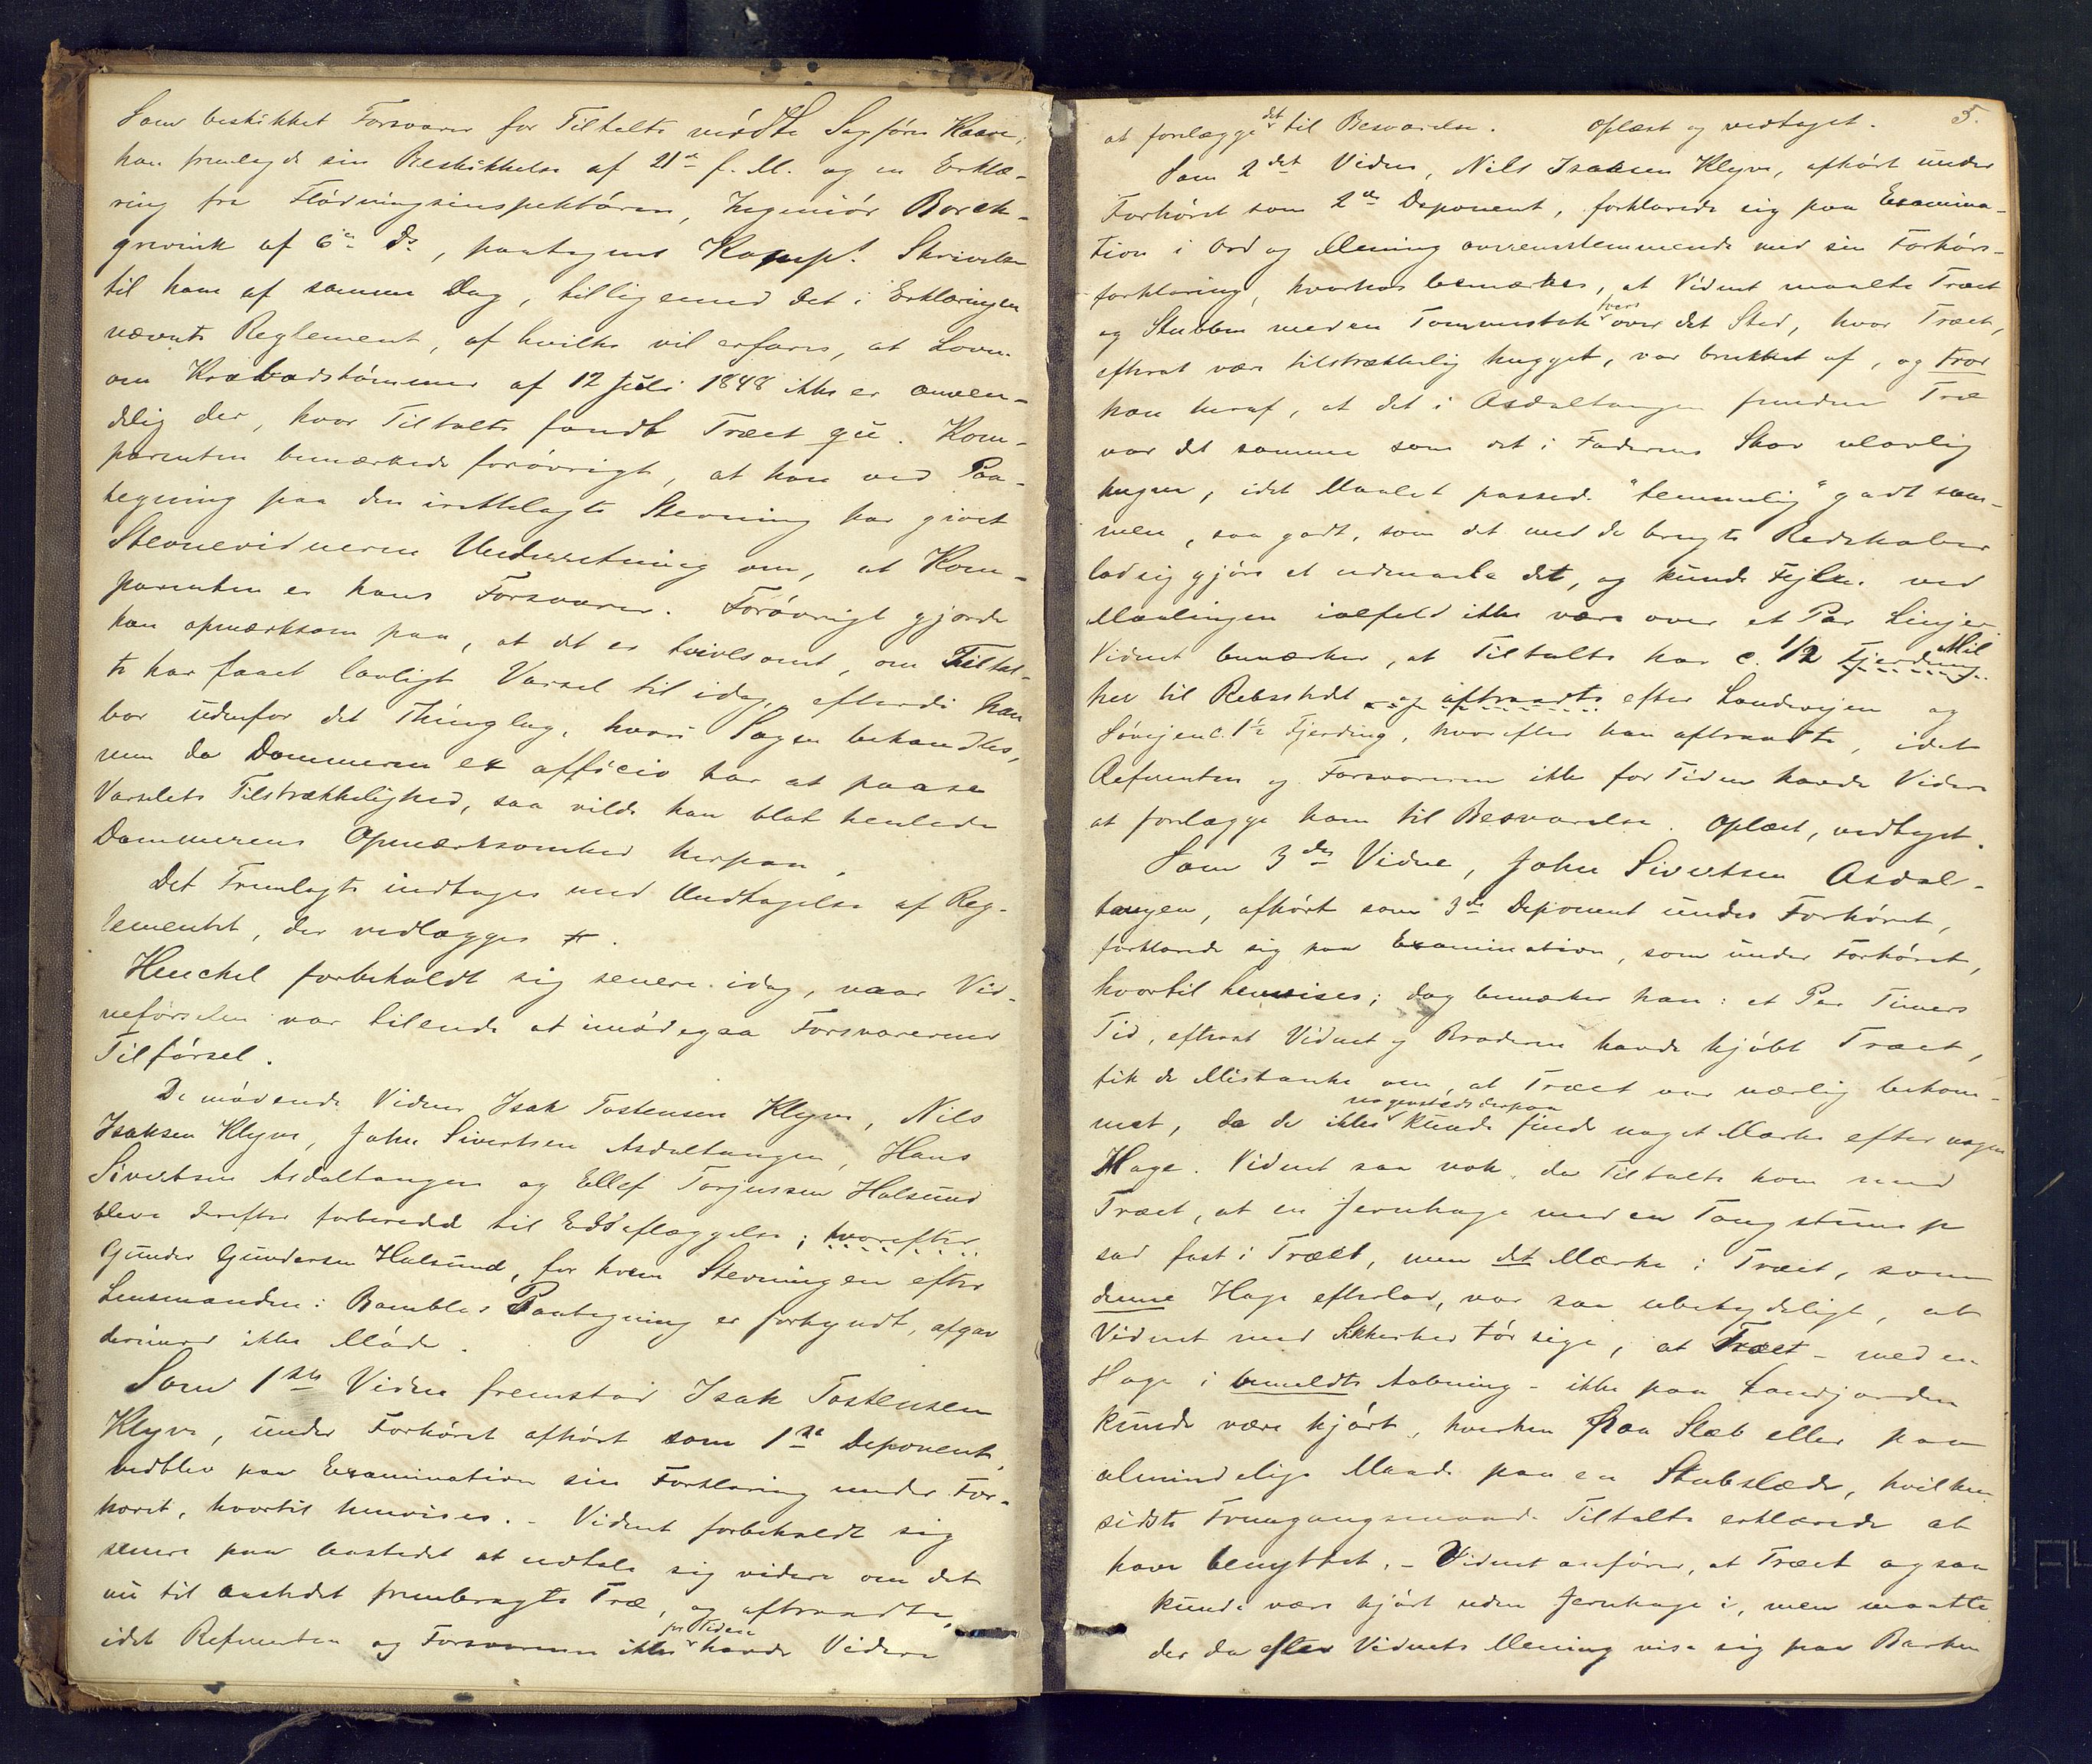 Som beskikket Forsvarer for Tiltalte mødte Sagfører
han fremlagde sin Beskikkelse af 21de f. M. og en Erklæ-
ring fra Flødningsinspektøren, Ingeniør Borch-
grevink af 6te ds, paategnet Skrivelse
til ham af samme Dag, tilligemed det i Erklæringen
nævnte Reglement, af hvilke vil erfares, at Loven
om af 12 Juli 1848 ikke er anven-
delig der, hvor Tiltalte fandt Træet qu. Kom-
parenten bemærkede forøvrigt, at han ved Paa-
tegning paa den irettelagte Stevning har givet
Stevnevidnerne Underretning om, at Kom-
parenten er hans Forsvarer. Forøvrigt gjorde
han opmærksom paa, at det er tvivlsomt, om Tiltal-
te har faaet lovligt Varsel til idag, efterdi han
bor udenfor det Thinglag, hvori Sagen behandles,
men da Dommeren ex officio har at paase
Varselets Tilstrækkelighed, saa vilde han blot henlede
Dommerens Opmærksomhed herpaa.
Det Fremlagte indtages med Undtagelse af Reg-
lementet, der vedlægges #.
Henchel forbeholdt sig senere idag, naar Vid-
neførselen var tilende at imødegaa Forsvarerens
Tilførsel.
De mødende Vidner Isak Tostensen Klyve, Nils
Isaksen Klyve, John Sivertsen Asdaltangen, Hans
Sivertsen Asdaltangen og Ellef Torjussen Halsund
bleve derefter forberedd til Edsaflæggelse; hvorefter
Gunder Gundersen Halsund, for hvem Stevningen efter
Lensmanden i Bambles Paategning er forkyndt, afgav
derimod ikke Møde.
Som 1ste Vidne fremstod Isak Tostensen
Klyve, under Forhøret afhørt som 1ste Deponent,
vedblev paa Examination sin Forklaring under For-
høret, hvortil henvises. - Vidnet forbeholdt sig
senere paa Aastedet at udtale sig videre om det
nu til Aastedet frembragte Træ, og aftraadte,
idet Referenten og Forsvareren ikke for Tiden havde Videre
5.
at forelægge det til Besvarelse. Oplæst og vedtaget.
Som 2det Vidne, Nils Isaksen Klyve, afhørt under
Forhøret som 2den Deponent, forklarede sig paa Examina-
tion i Ord og Mening overensstemmende med sin Forhørs-
forklaring, hvorhos bemærkes, at Vidnet maalte Træet
og Stubben med en Tommestok tvers over det Sted, hvor Træet,
efterat være tilstrækkelig hugget, var brukket af, og tror
han heraf, at det i Asdaltangen fundne Træ
var det samme som det i Faderens Skov ulovlig
hugne, idet Maalet passede "temmelig" godt sam-
men, saa godt, som det med de brugte Redskaber
lod sig gjøre at udmaale det, og kunde Fejlen ved
Maalingen ialfald ikke være over et Par Linjer.
Vidnet bemærker, at Tiltalte har c. 1/2 Fjerding Mil
her til Retsstedet og aftraadte efter Landevejen og
Søvejen c. 1 1/2 Fjerding, hvorefter han aftraadte, idet
Referenten og Forsvareren ikke for Tiden havde Videre
at forelægge ham til Besvarelse. Oplæst, vedtaget.
Som 3die Vidne, John Sivertsen Asdal-
tangen, afhørt som 3die Deponent under Forhøret,
forklarede sig paa Examination, som under Forhøret,
hvortil henvises; dog bemærker han: et Par Timers
Tid, efterat Vidnet og Broderen havde kjøbt Træet,
fik de Mistanke om, at Træet var uærlig bekom-
met, da de ikke nogensteds derpaa kunde finde noget Mærke efter nogen
Hage. Vidnet saa nok, da Tiltalte kom med
Træet, at en Jernhage med en Tougstump
sad fast i Træet, men det Mærke i Træet, som
denne Hage efterlod, var saa ubetydeligt, at
Vidnet med Sikkerhed tør sige, at Træet - med en
Hage i bemeldte Aabning - ikke paa Landjorden
kunde være kjørt, hverken paa Slæb eller paa
almindelige Maade paa en Stubslæde, hvilken
sidste Fremgangsmaade Tiltalte erklærede at
have benyttet. - Vidnet anfører, at Træet ogsaa
kunde være kjørt uden Jernhage i, men maatte
der da efter Vidnets Mening vise sig paa Barken